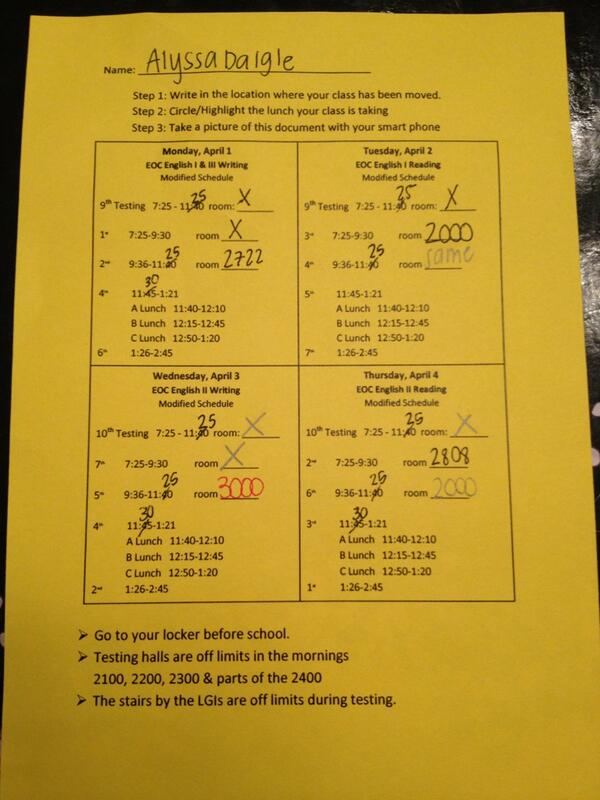 Name: Alyssa Daigle
Step 1: Write in the location where your class has been moved.
Step 2: Circle/Highlight the lunch your class is taking
Step 3: Take a picture of this document with your smart phone
Monday, April 1
EOC English I & III Writing
Modified Schedule
25
9th Testing 7:25 - 11:40 room: X
1st 7:25-9:30 room X
25
2nd 9:36-11:40 room 2722
30
4th 11:45-1:21
A Lunch 11:40-12:10
B Lunch 12:15-12:45
C Lunch 12:50-1:20
6th 1:26-2:45
Tuesday, April 2
EOC English I Reading
Modified Schedule
25
9th Testing 7:25 - 11:40 room: X
3rd 7:25-9:30 room 2000
25
4th 9:36-11:40 room same
5th 11:45-1:21
A Lunch 11:40-12:10
B Lunch 12:15-12:45
C Lunch 12:50-1:20
7th 1:26-2:45
Wednesday, April 3
EOC English II Writing
Modified Schedule
25
10th Testing 7:25 - 11:40 room: X
7th 7:25-9:30 room X
25
5th 9:36-11:40 room 3000
30
4th 11:45-1:21
A Lunch 11:40-12:10
B Lunch 12:15-12:45
C Lunch 12:50-1:20
2nd 1:26-2:45
Thursday, April 4
EOC English II Reading
Modified Schedule
25
10th Testing 7:25 - 11:40 room: X
2nd 7:25-9:30 room 2808
25
6th 9:36-11:40 room 2000
30
3rd 11:45-1:21
A Lunch 11:40-12:10
B Lunch 12:15-12:45
C Lunch 12:50-1:20
1st 1:26-2:45
➢ Go to your locker before school.
➢ Testing halls are off limits in the mornings
2100, 2200, 2300 & parts of the 2400
➢ The stairs by the LGIs are off limits during testing.